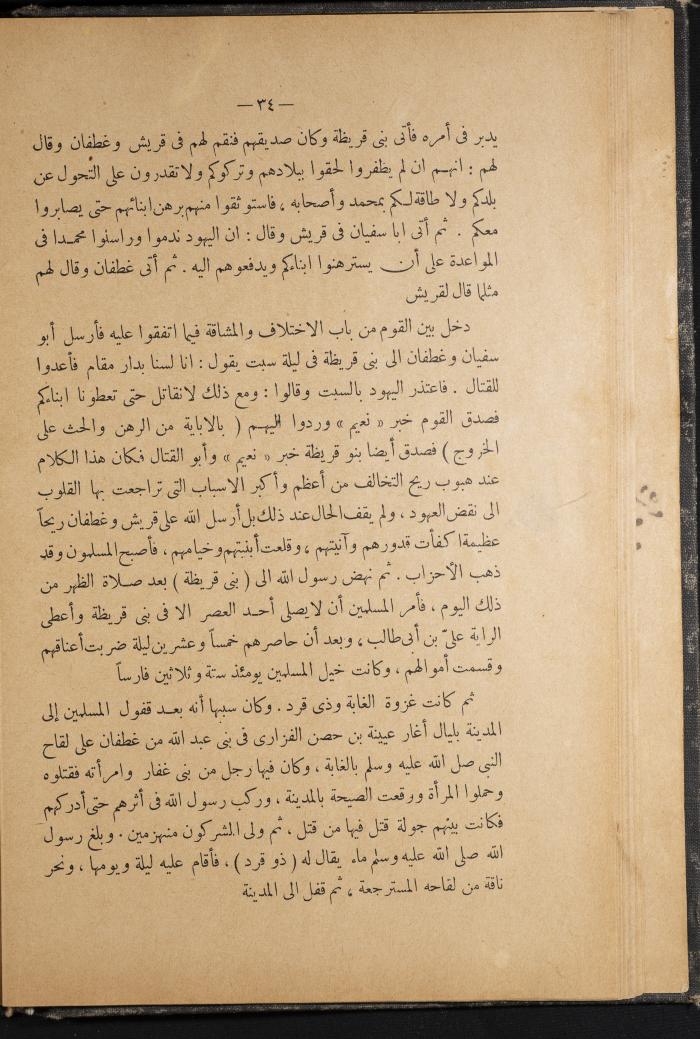 — ٣٤ —
يدبر فى أمره فأتى بنى قريظة وكان صديقهم فنقم لهم فى قريش وغطفان وقال
لهم : انهـم ان لم يظفروا لحقوا ببلادهم وتركوكم ولا تقدرون على التَّحول عن
بلدكم ولا طاقة لـكم بمحمد وأصحابه ، فاستوثقوا منهم برهن ابنائهم حتى يصابروا
معكم . ثم أتى ابا سفيان فى قريش وقال : ان اليهود ندموا وراسلوا محمـدا فى
المواعدة على أن يسترهنوا ابناءكم ويدفعوهم اليه . ثم أتى غطفان وقال لهم
مثلما قال لقريش
دخل بين القوم من باب الاختلاف والمشاقة فيما اتفقوا عليه فأرسل أبو
سفيان وغطفان الى بنى قريظة فى ليلة سبت يقول : انا لسنا بدار مقام فأعدوا
للقتال . فاعتذر اليهود بالسبت وقالوا : ومع ذلك لانقاتل حتى تعطونا ابناءكم
فصدق القوم خبر « نعيم » وردوا اليهـم ( بالاباية من الرهن والحث على
الخروج ) فصدق أيضا بنو قريظة خبر « نعيم » وأبو القتال فكان هذا الكلام
عند هبوب ريح التخالف من أعظم وأكبر الاسباب التى تراجعت بها القلوب
الى نقض العهود ، ولم يقف الحال عند ذلك بل أرسل الله على قريش وغطفان ريحاً
عظيمة اكفأت قدورهم وآنيتهم ، وقلعت أبنيتهم وخيامهم ، فأصبح المسلمون وقد
ذهب الأحزاب . ثم نهض رسول الله الى ( بنى قريظة ) بعد صـلاة الظهر من
ذلك اليوم ، فأمر المسلمين أن لايصلى أحـد العصر الا فى بنى قريظة وأعطى
الراية علىّ بن أبى طالب ، وبعد أن حاصرهم خمساً وعشرين ليلة ضربت أعناقهم
وقسمت أموالهم ، وكانت خيل المسلمين يومئذ ستة وثلاثين فارساً
ثم كانت غزوة الغابة وذى قرد . وكان سببها أنه بعـد قفول المسلمين إلى
المدينة بليال أغار عيينة بن حصن الفزارى فى بنى عبد الله من غطفان على لقاح
النبى صل الله عليه وسلم بالغابة ، وكان فيها رجل من بنى غفار وامرأته فقتلوه
وحملوا المرأة ووقعت الصيحة بالمدينة ، وركب رسول الله فى أثرهم حتى أدركهم
فكانت بينهم جولة قتل فيها من قتل ، ثم ولى المشركون منهزمين . وبلغ رسول
الله صلى الله عليه وسلم ماء يقال له ( ذو قرد ) ، فأقام عليه ليلة ويومها ، ونحر
ناقة من لقاحه المسترجعة ، ثم قفل الى المدينة